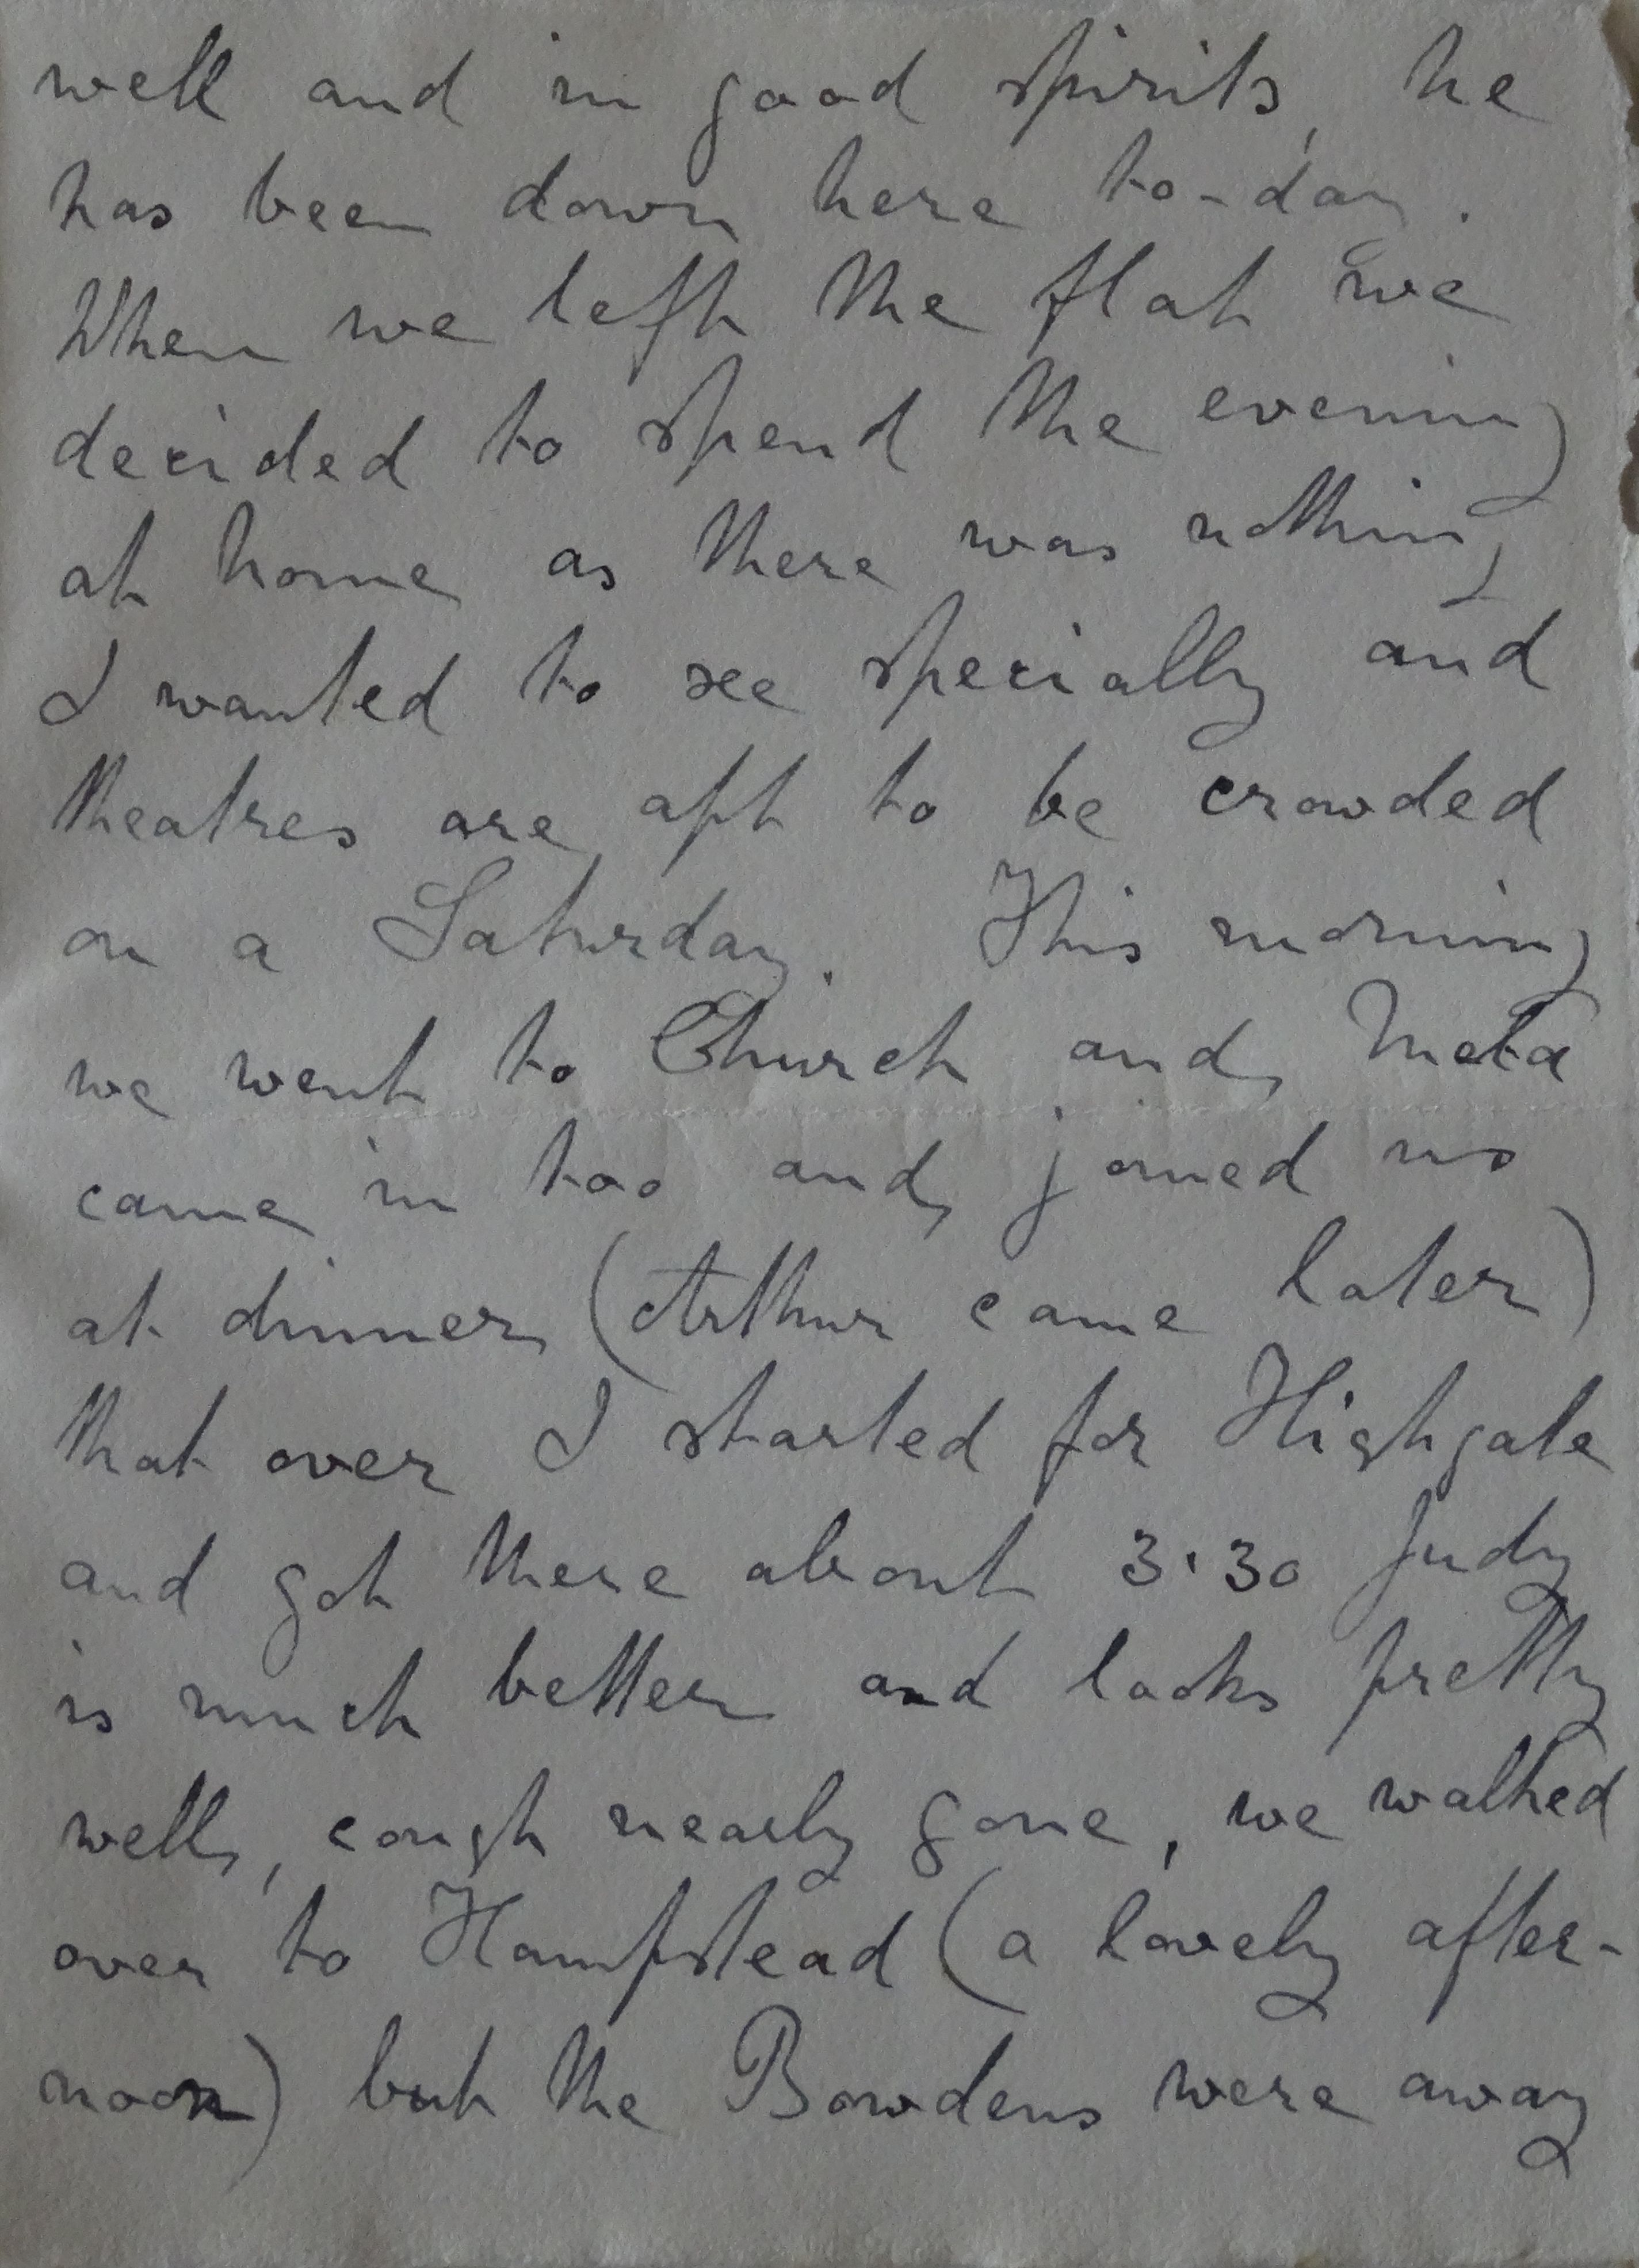 well and in good spirits, he
has been down here to-day.
When we left the flat we
decided to spend the evening
at home as there was nothing
I wanted to see specially and
theatres are apt to be crowded
on a Saturday. This morning
we went to Church and Meta
came in too and joined us
at dinner (Arthur came later)
that over I started for Highgate
and got there about 3.30 Judy
is much better and looks pretty
well, cough nearly gone, we walked
over to Hampstead (a lovely after-
noon) but the Bowdens were away